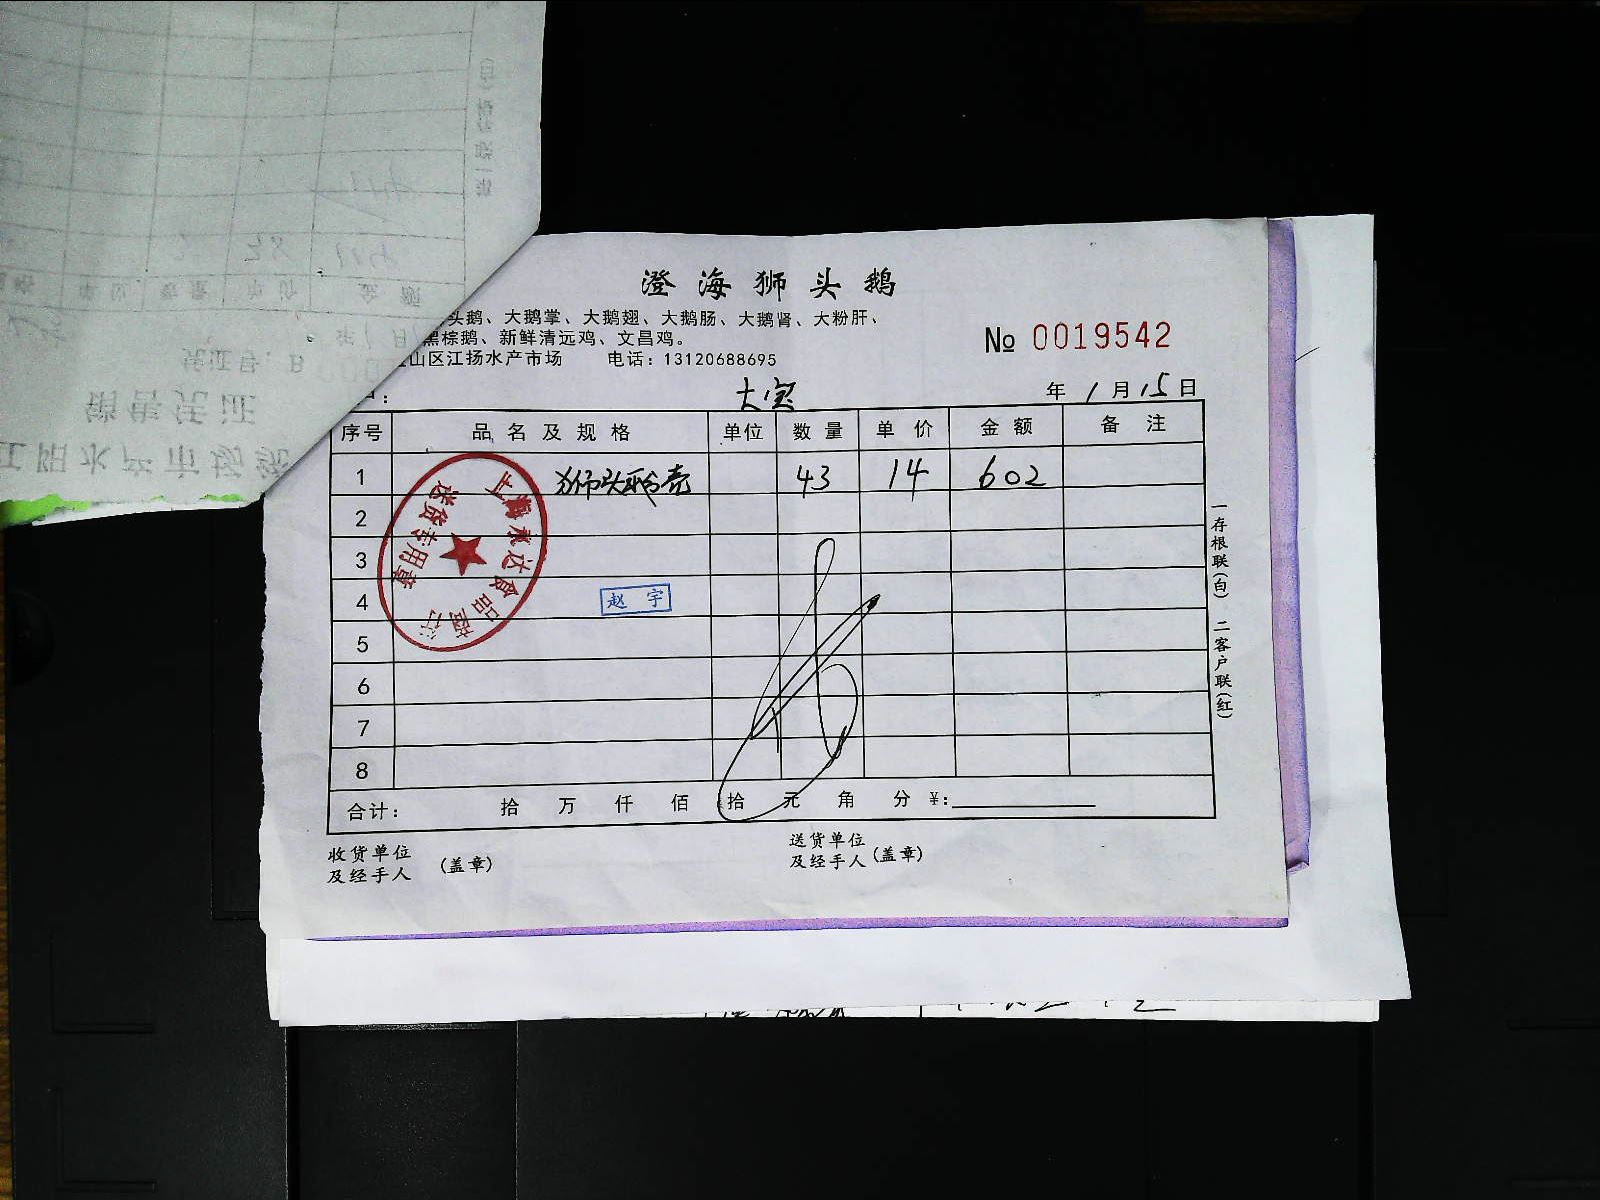 澄海狮头鹅
头鹅、大鹅掌、大鹅翅、大鹅肠、大鹅肾、大粉肝、
黑棕鹅、新鲜清远鸡、文昌鸡。
山区江扬水产市场 电话：13120688695
№ 0019542
：大宝 年1月15日
序号 品名及规格 单位 数量 单价 金额 备注
1 狮头 壳 43 14 602
2
3
4
5
6
7
8
上海永达食品商行
送货专用章
赵宇
合计： 拾 万 仟 佰 拾 元 角 分 ¥：
收货单位
及经手人 （盖章）
送货单位
及经手人（盖章）
一存根联（白） 二客户联（红）
江阳水产市场
销售凭证
凭证号：B